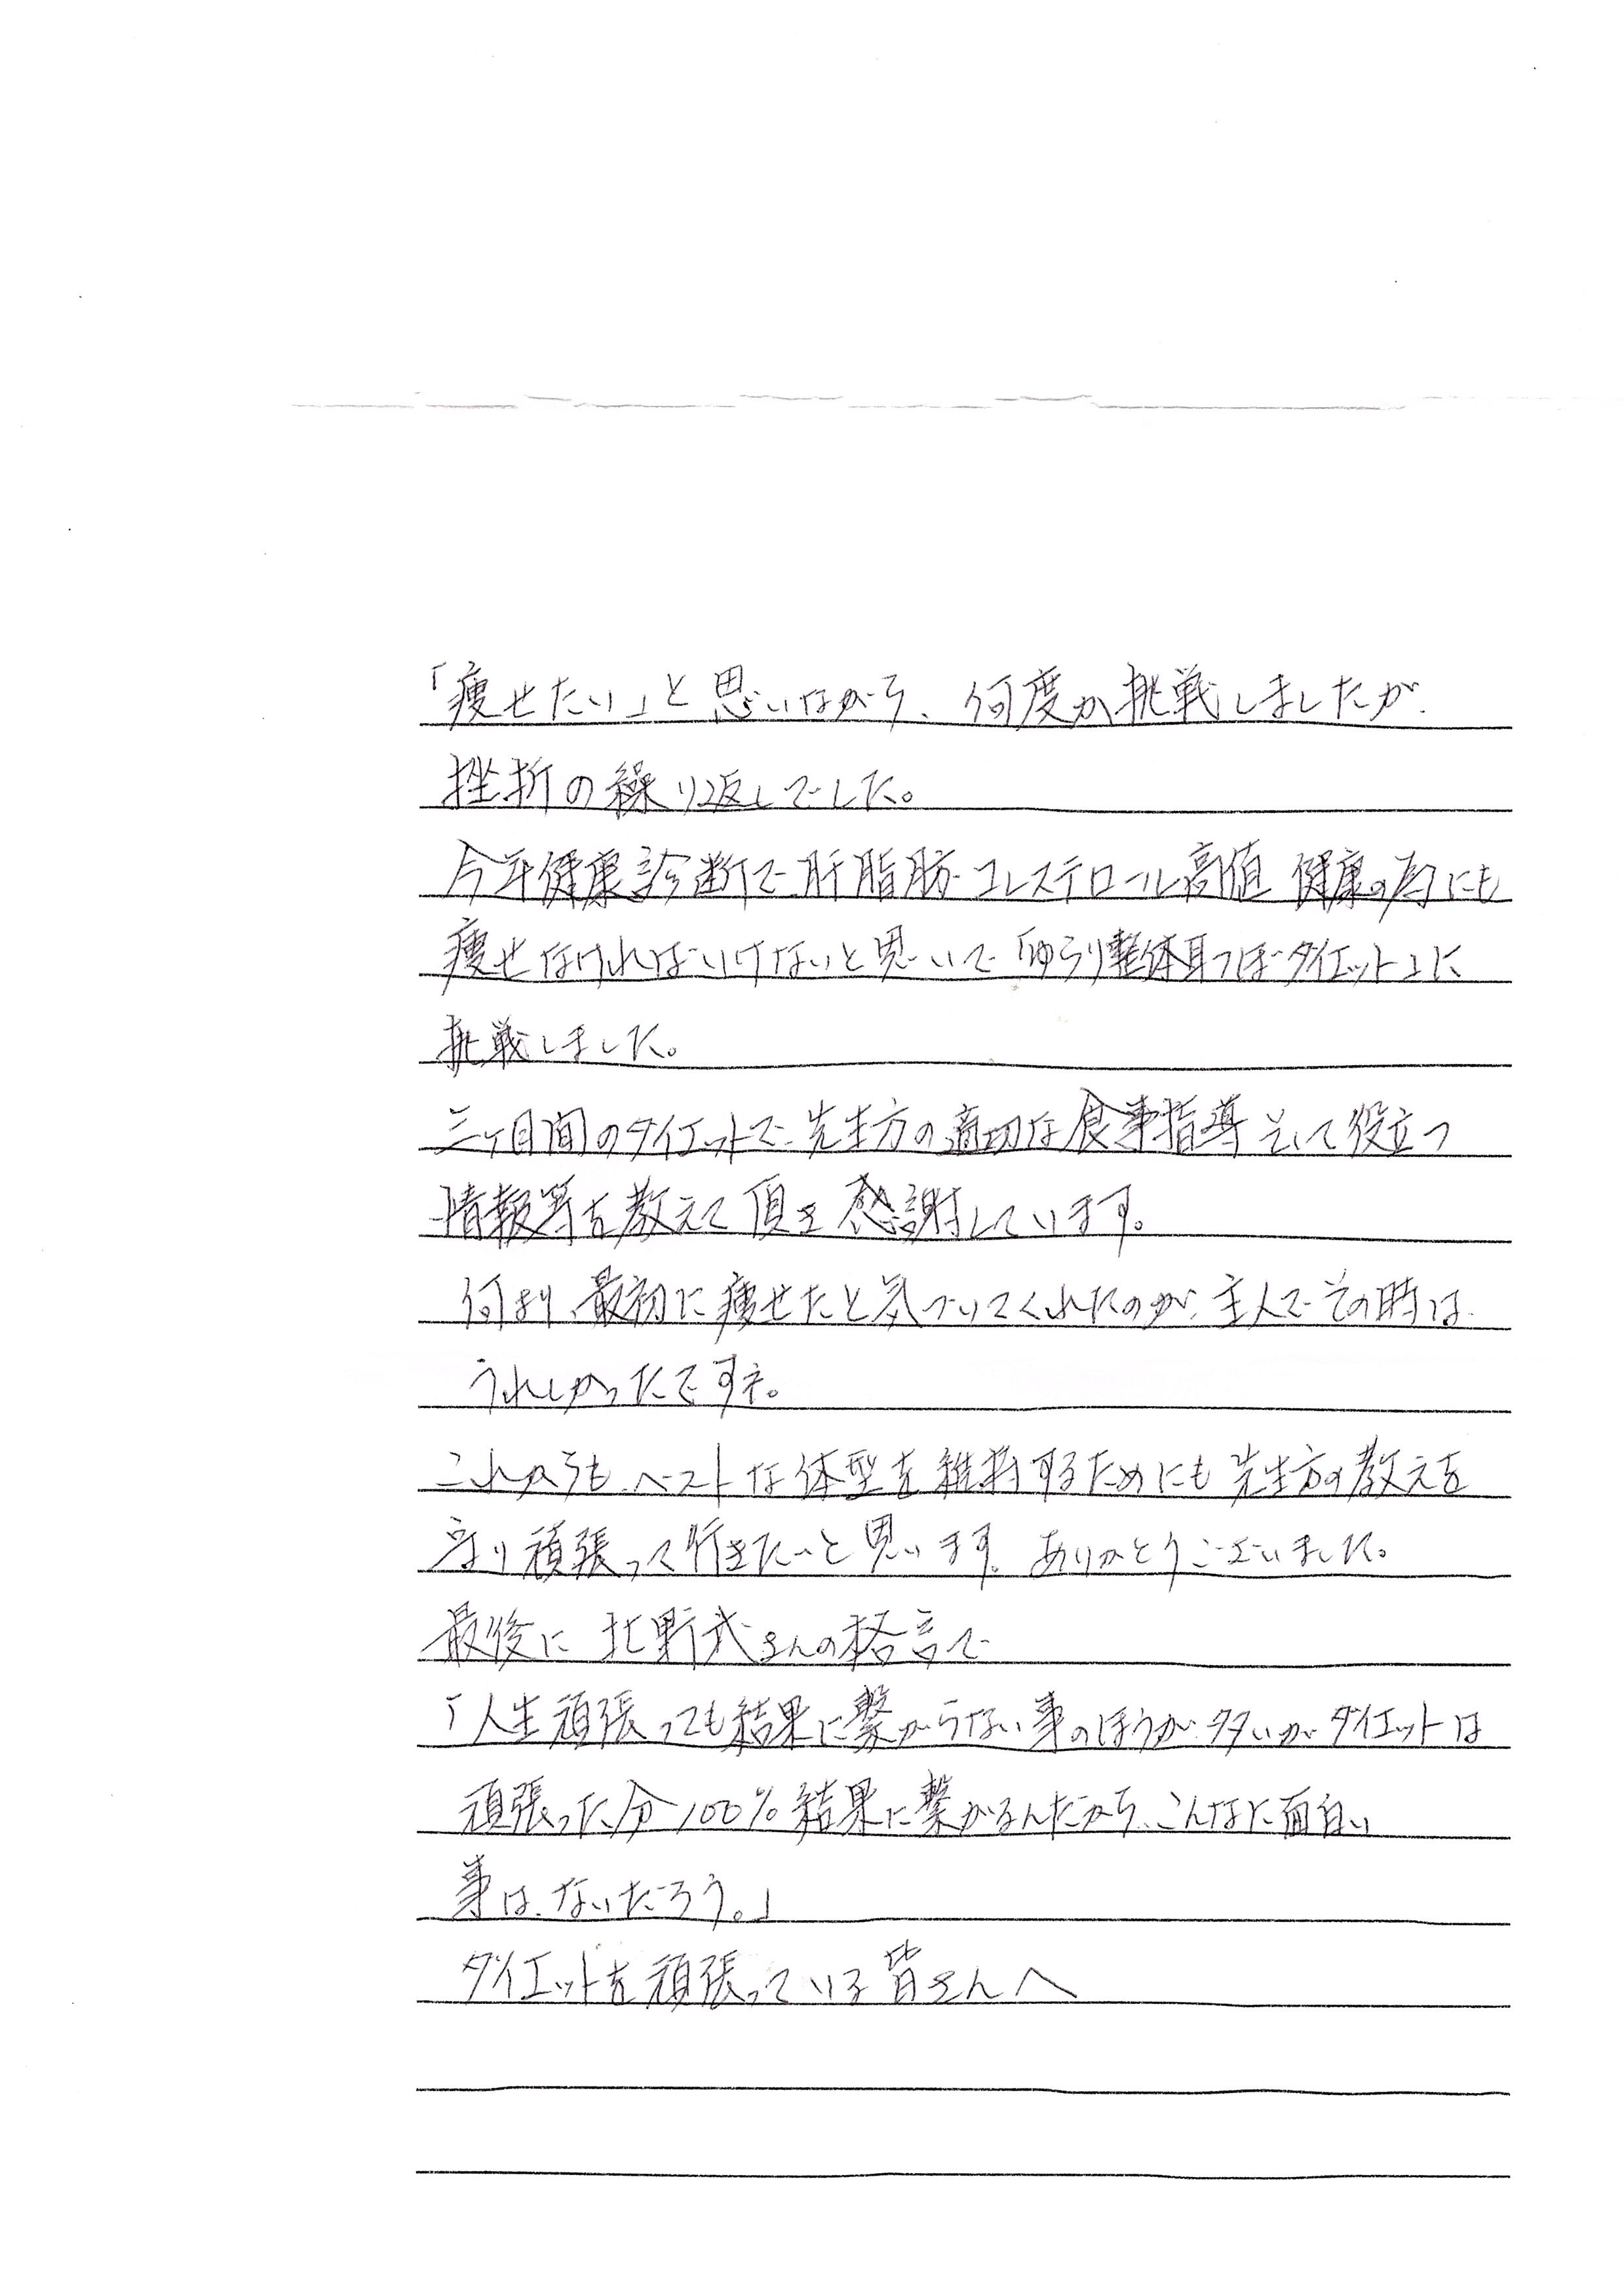 「痩せたい」と思いながら、何度か挑戦しましたが、
挫折の繰り返しでした。
今年健康診断で肝脂肪・コレステロール高値 健康の為にも
痩せなければいけないと思いで「ゆらり整体耳つぼダイエット」に
挑戦しました。
三ヶ月間のダイエットで先生方の適切な食事指導そして役立つ
情報等を教えて頂き感謝しています。
何より、最初に痩せたと気づいてくれたのが、主人でその時は
うれしかったですネ。
これからも、ベストな体型を維持するためにも先生方の教えを
守り頑張って行きたいと思います。ありがとうございました。
最後に 北野武さんの格言で
「人生頑張っても結果に繋がらない事のほうが多いがダイエットは
頑張った分100%結果に繋がるんだから、こんなに面白い
事は、ないだろう。」
ダイエットを頑張っている皆さんへ